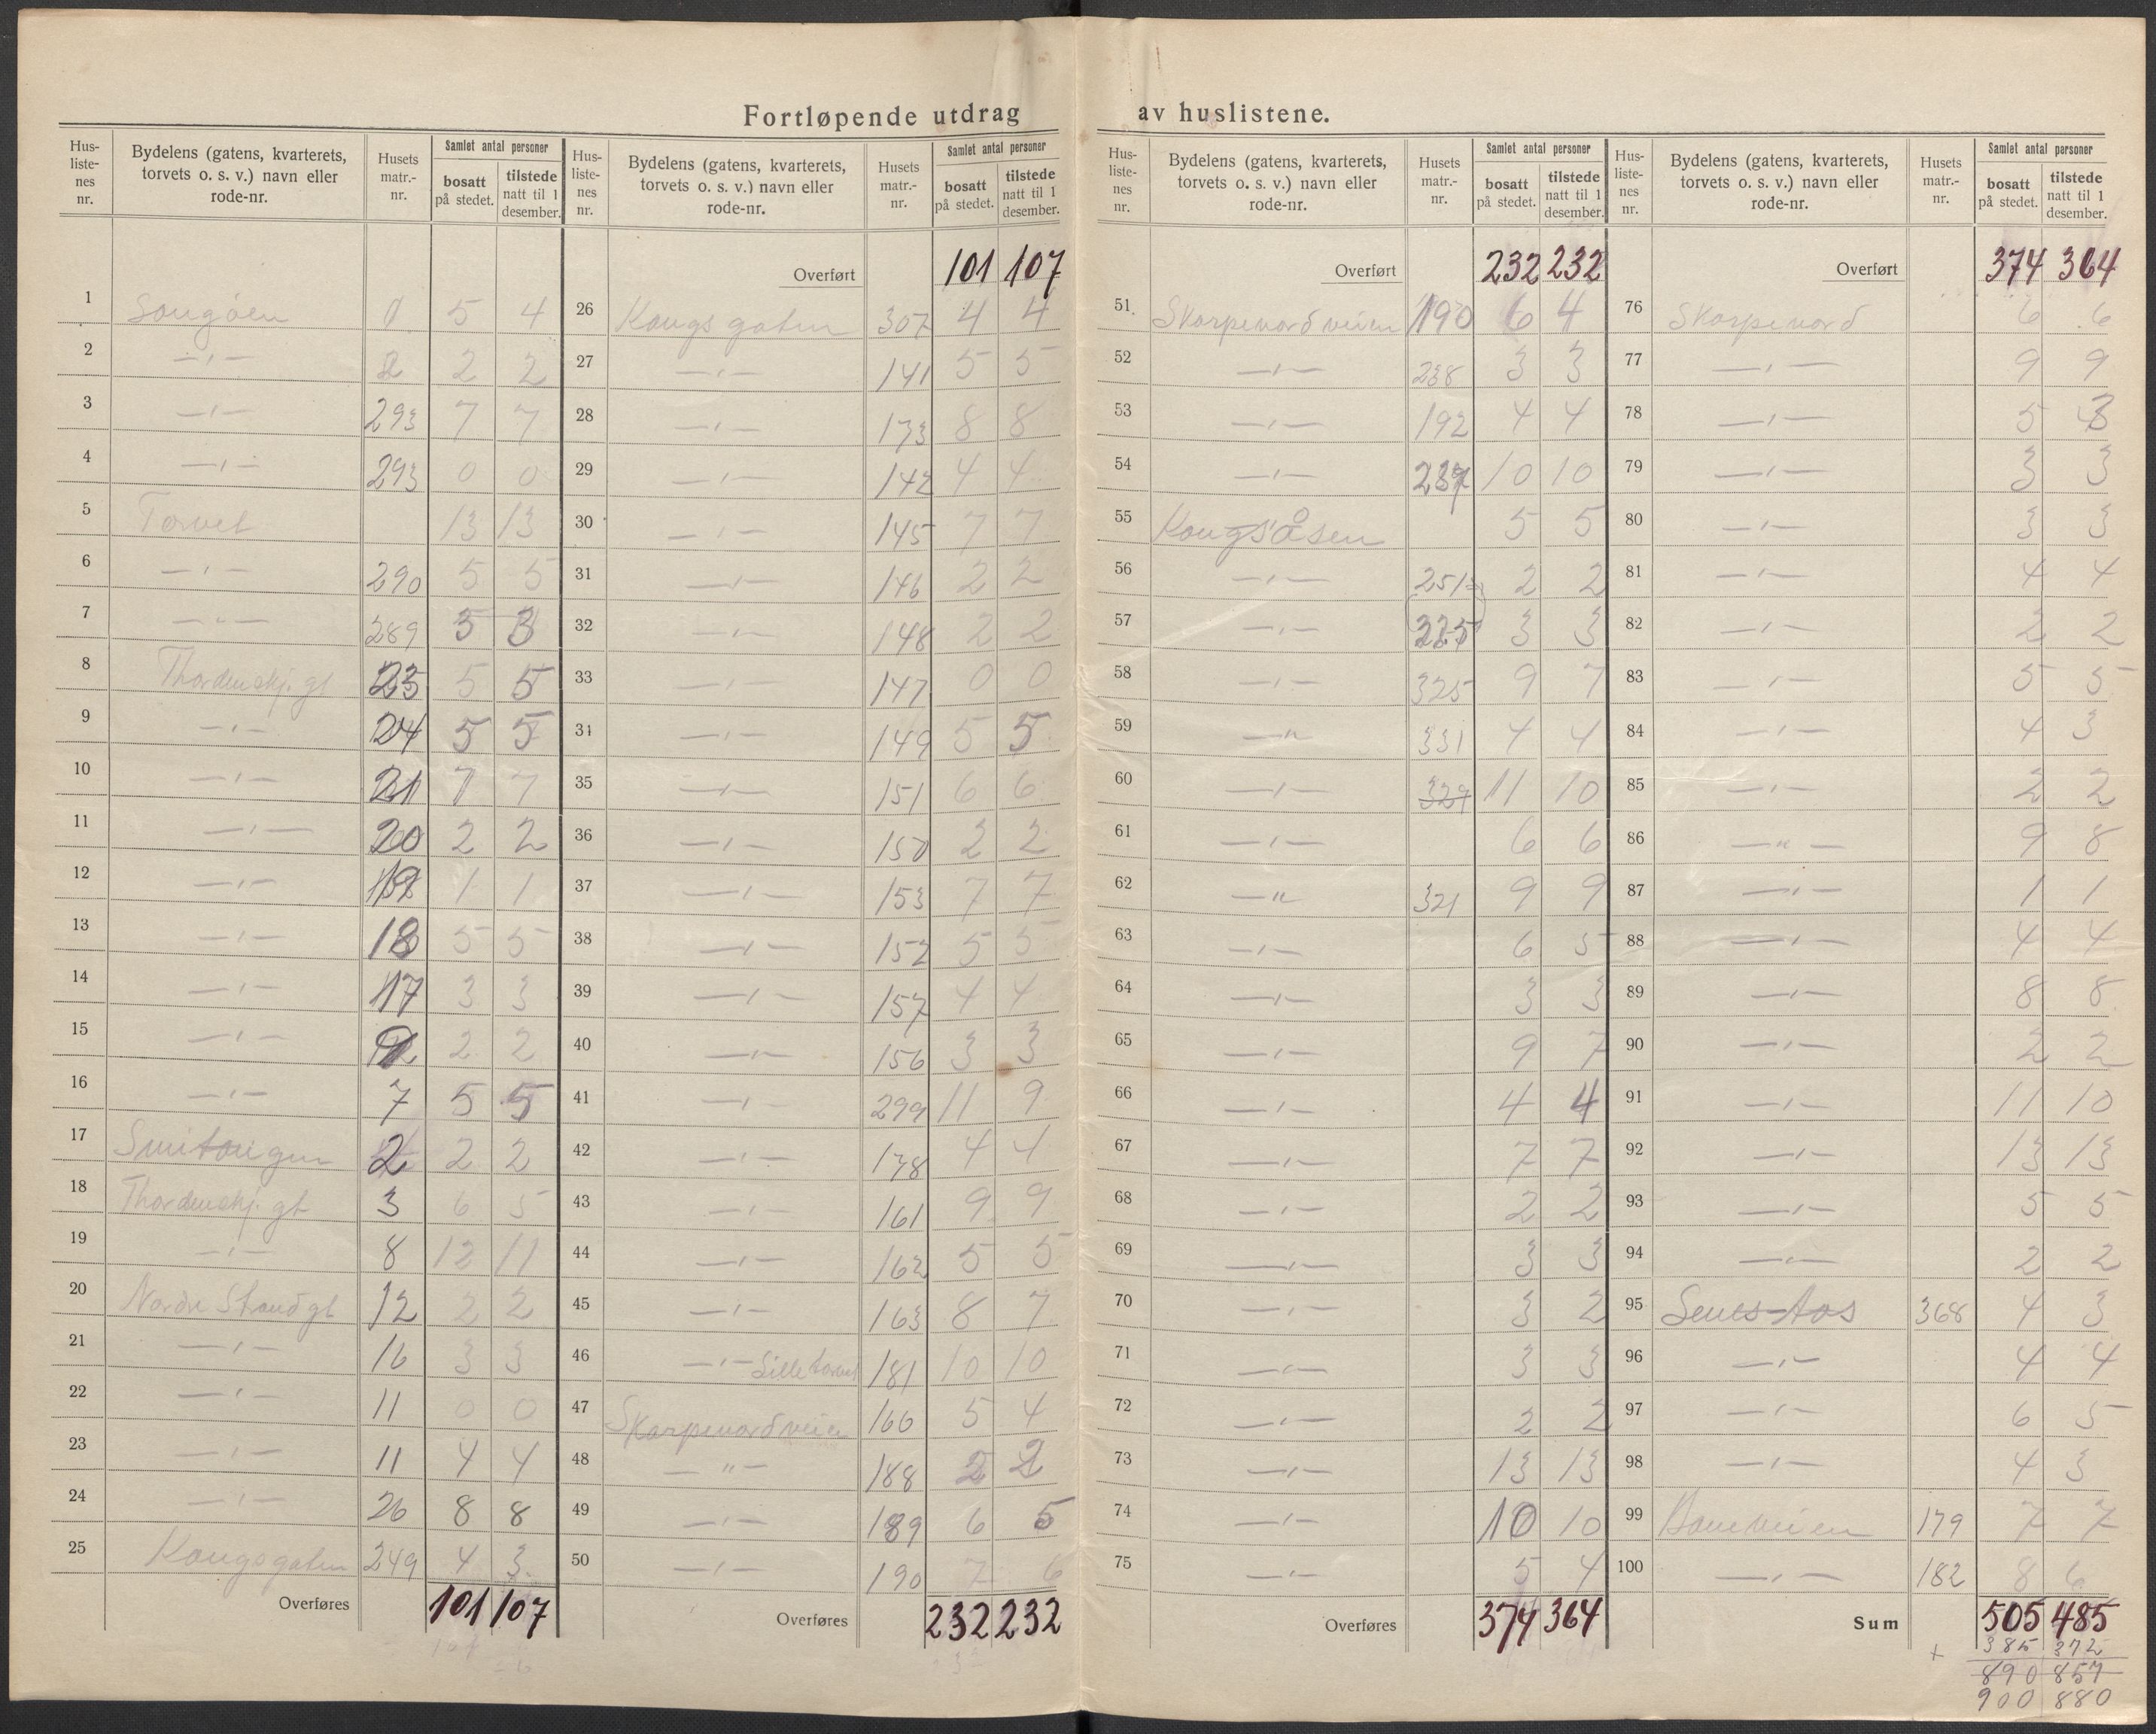 Fortløpende utdrag av huslistene.
Hus-liste-nes nr. | Bydelens (gatens, kvarterets, torvets o. s. v.) navn eller rode-nr. | Husets matr.-nr. | Samlet antal personer bosatt på stedet. | tilstede natt til 1 desember.
1 Langøen 1 5 4
2 —"— 2 2 2
3 —"— 293 7 7
4 —"— 293 0 0
5 Torvet 13 13
6 —"— 290 5 5
7 —"— 289 3
8 Thordenskj. gt 23 5 5
9 —"— 24 5 5
10 —"— 21 7 7
11 —"— 20 2 2
12 —"— 19 1 1
13 —"— 18 5 5
14 —"— 17 3 3
15 —"— 2 2
16 —"— 7 5 5
17 Smitangen 2 2 2
18 Thordenskj. gt 3 6 5
19 —"— 8 12 11
20 Nordre Strandgt 12 2 2
21 —"— 16 3 3
22 —"— 11 0 0
23 —"— 11 4 4
24 —"— 26 8 8
25 Kongsgaten 249 4 3
Overføres 101 107
Hus-liste-nes nr. | Bydelens (gatens, kvarterets, torvets o. s. v.) navn eller rode-nr. | Husets matr.-nr. | Samlet antal personer bosatt på stedet. | tilstede natt til 1 desember.
Overført 101 107
26 Kongsgaten 307 4 4
27 —"— 141 5 5
28 —"— 173 8 8
29 —"— 142 4 4
30 —"— 145 7 7
31 —"— 146 2 2
32 —"— 148 2 2
33 —"— 147 0 0
34 —"— 149 5 5
35 —"— 151 6 6
36 —"— 150 2 2
37 —"— 153 7 7
38 —"— 152 5 5
39 —"— 157 4 4
40 —"— 156 3 3
41 —"— 299 11 9
42 —"— 178 4 4
43 —"— 161 9 9
44 —"— 162 5 5
45 —"— 163 8 7
46 —"— Lilletorvet 181 10 10
47 Skarpenordveien 166 5 4
48 —"— 188 2 2
49 —"— 189 6 5
50 —"— 190 7 6
Overføres 232 232
Hus-liste-nes nr. | Bydelens (gatens, kvarterets, torvets o. s. v.) navn eller rode-nr. | Husets matr.-nr. | Samlet antal personer bosatt på stedet. | tilstede natt til 1 desember.
Overført 232 232
51 Skarpenordveien 190 6 4
52 —"— 238 3 3
53 —"— 192 4 4
54 —"— 237 10 10
55 Kongsåsen 5 5
56 —"— 251 2 2
57 —"— 325 3 3
58 —"— 325 9 7
59 —"— 331 4 4
60 —"— 329 11 10
61 —"— 6 6
62 —"— 321 9 9
63 —"— 6 5
64 —"— 3 3
65 —"— 9 7
66 —"— 4 4
67 —"— 7 7
68 —"— 2 2
69 —"— 3 3
70 —"— 3 2
71 —"— 3 3
72 —"— 2 2
73 —"— 13 13
74 —"— 10 10
75 —"— 5 4
Overføres 374 364
Hus-liste-nes nr. | Bydelens (gatens, kvarterets, torvets o. s. v.) navn eller rode-nr. | Husets matr.-nr. | Samlet antal personer bosatt på stedet. | tilstede natt til 1 desember.
Overført 374 364
76 Skarpenord 6 6
77 —"— 9 9
78 —"— 5 3
79 —"— 3 3
80 —"— 3 3
81 —"— 4 4
82 —"— 2 2
83 —"— 5 5
84 —"— 4 3
85 —"— 2 2
86 —"— 9 8
87 —"— 1 1
88 —"— 4 4
89 —"— 8 8
90 —"— 2 2
91 —"— 11 10
92 —"— 13 13
93 —"— 5 5
94 —"— 2 2
95 368 4 3
96 —"— 4 4
97 —"— 6 5
98 —"— 4 3
99 Baneveien 179 7 7
100 —"— 182 8 6
Sum 505 485
+ 385 372
890 857
900 880